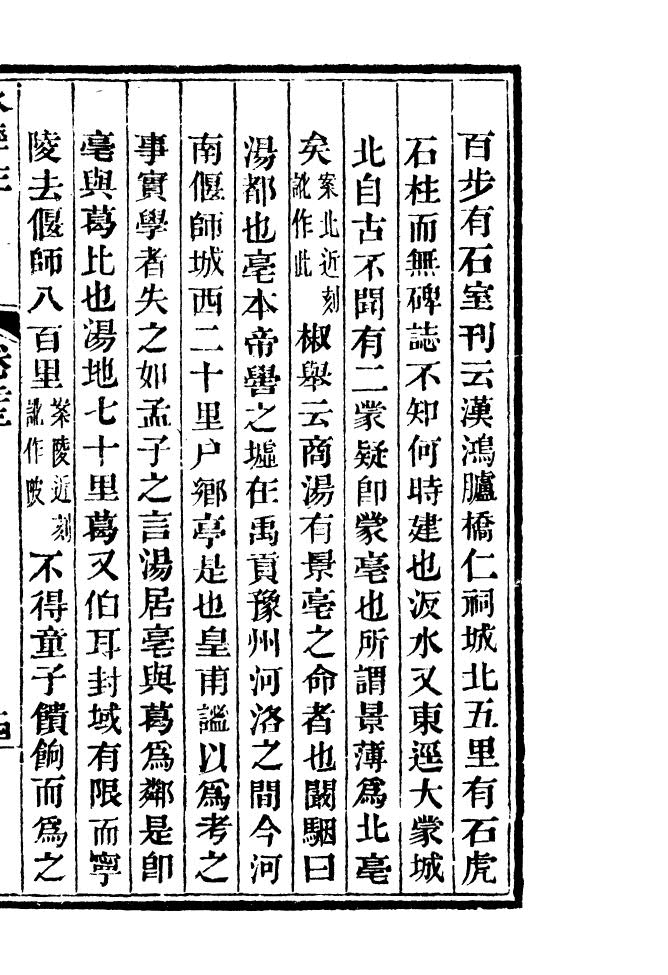 百步有石室刊云漢鴻臚橋仁祠城北五里有石虎
石柱而無碑誌不知何時建也汳水又東逕大蒙城
北自古不聞有二蒙疑卽蒙亳也所謂景薄為北亳
矣案北近刻訛作此椒舉云商湯有景亳之命者也闞駰曰
湯都也亳本帝嚳之墟在禹貢豫州河洛之間今河
南偃師城西二十里户鄉亭是也皇甫謐以為考之
事實學者失之如孟子之言湯居亳與葛為鄰是卽
亳與葛比也湯地七十里葛又伯耳封域有限而寧
陵去偃師八百里案陵近刻訛作陂不得童子饋餉而為之
水經注